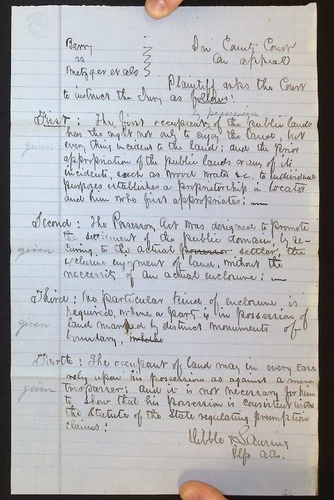 Berry
vs
Metzger et als
In County Court
On appeal
Plaintiff asks the Court
to instruct the Jury as follows:
First: The first occupant of the public lands
has the right not only to enjoy the land, but
every thing incident to the land; and the prior
appropriation of the public lands or any of its
incidents, such as wood water &c. to individual
purposes establishes a proprietorship in locator
and him who first appropriates:
given
Second: The Possession Act was designed to promote
the settlement of the public domain, by se-
curing to the actual settler, the
exclusive enjoyment of land, without the
necessity of an actual enclosure:
given
Third: No particular kind of enclosure is
required, where a part is in possession of
land marked by distinct monuments of
boundary,
given
Fourth: The occupant of land may in every case
rely upon his possession as against a mere
trespasser; and it is not necessary for him
to show that his possession is consistent with
the Statute of the State regulating preemption
claims:
given
Plffs atts.